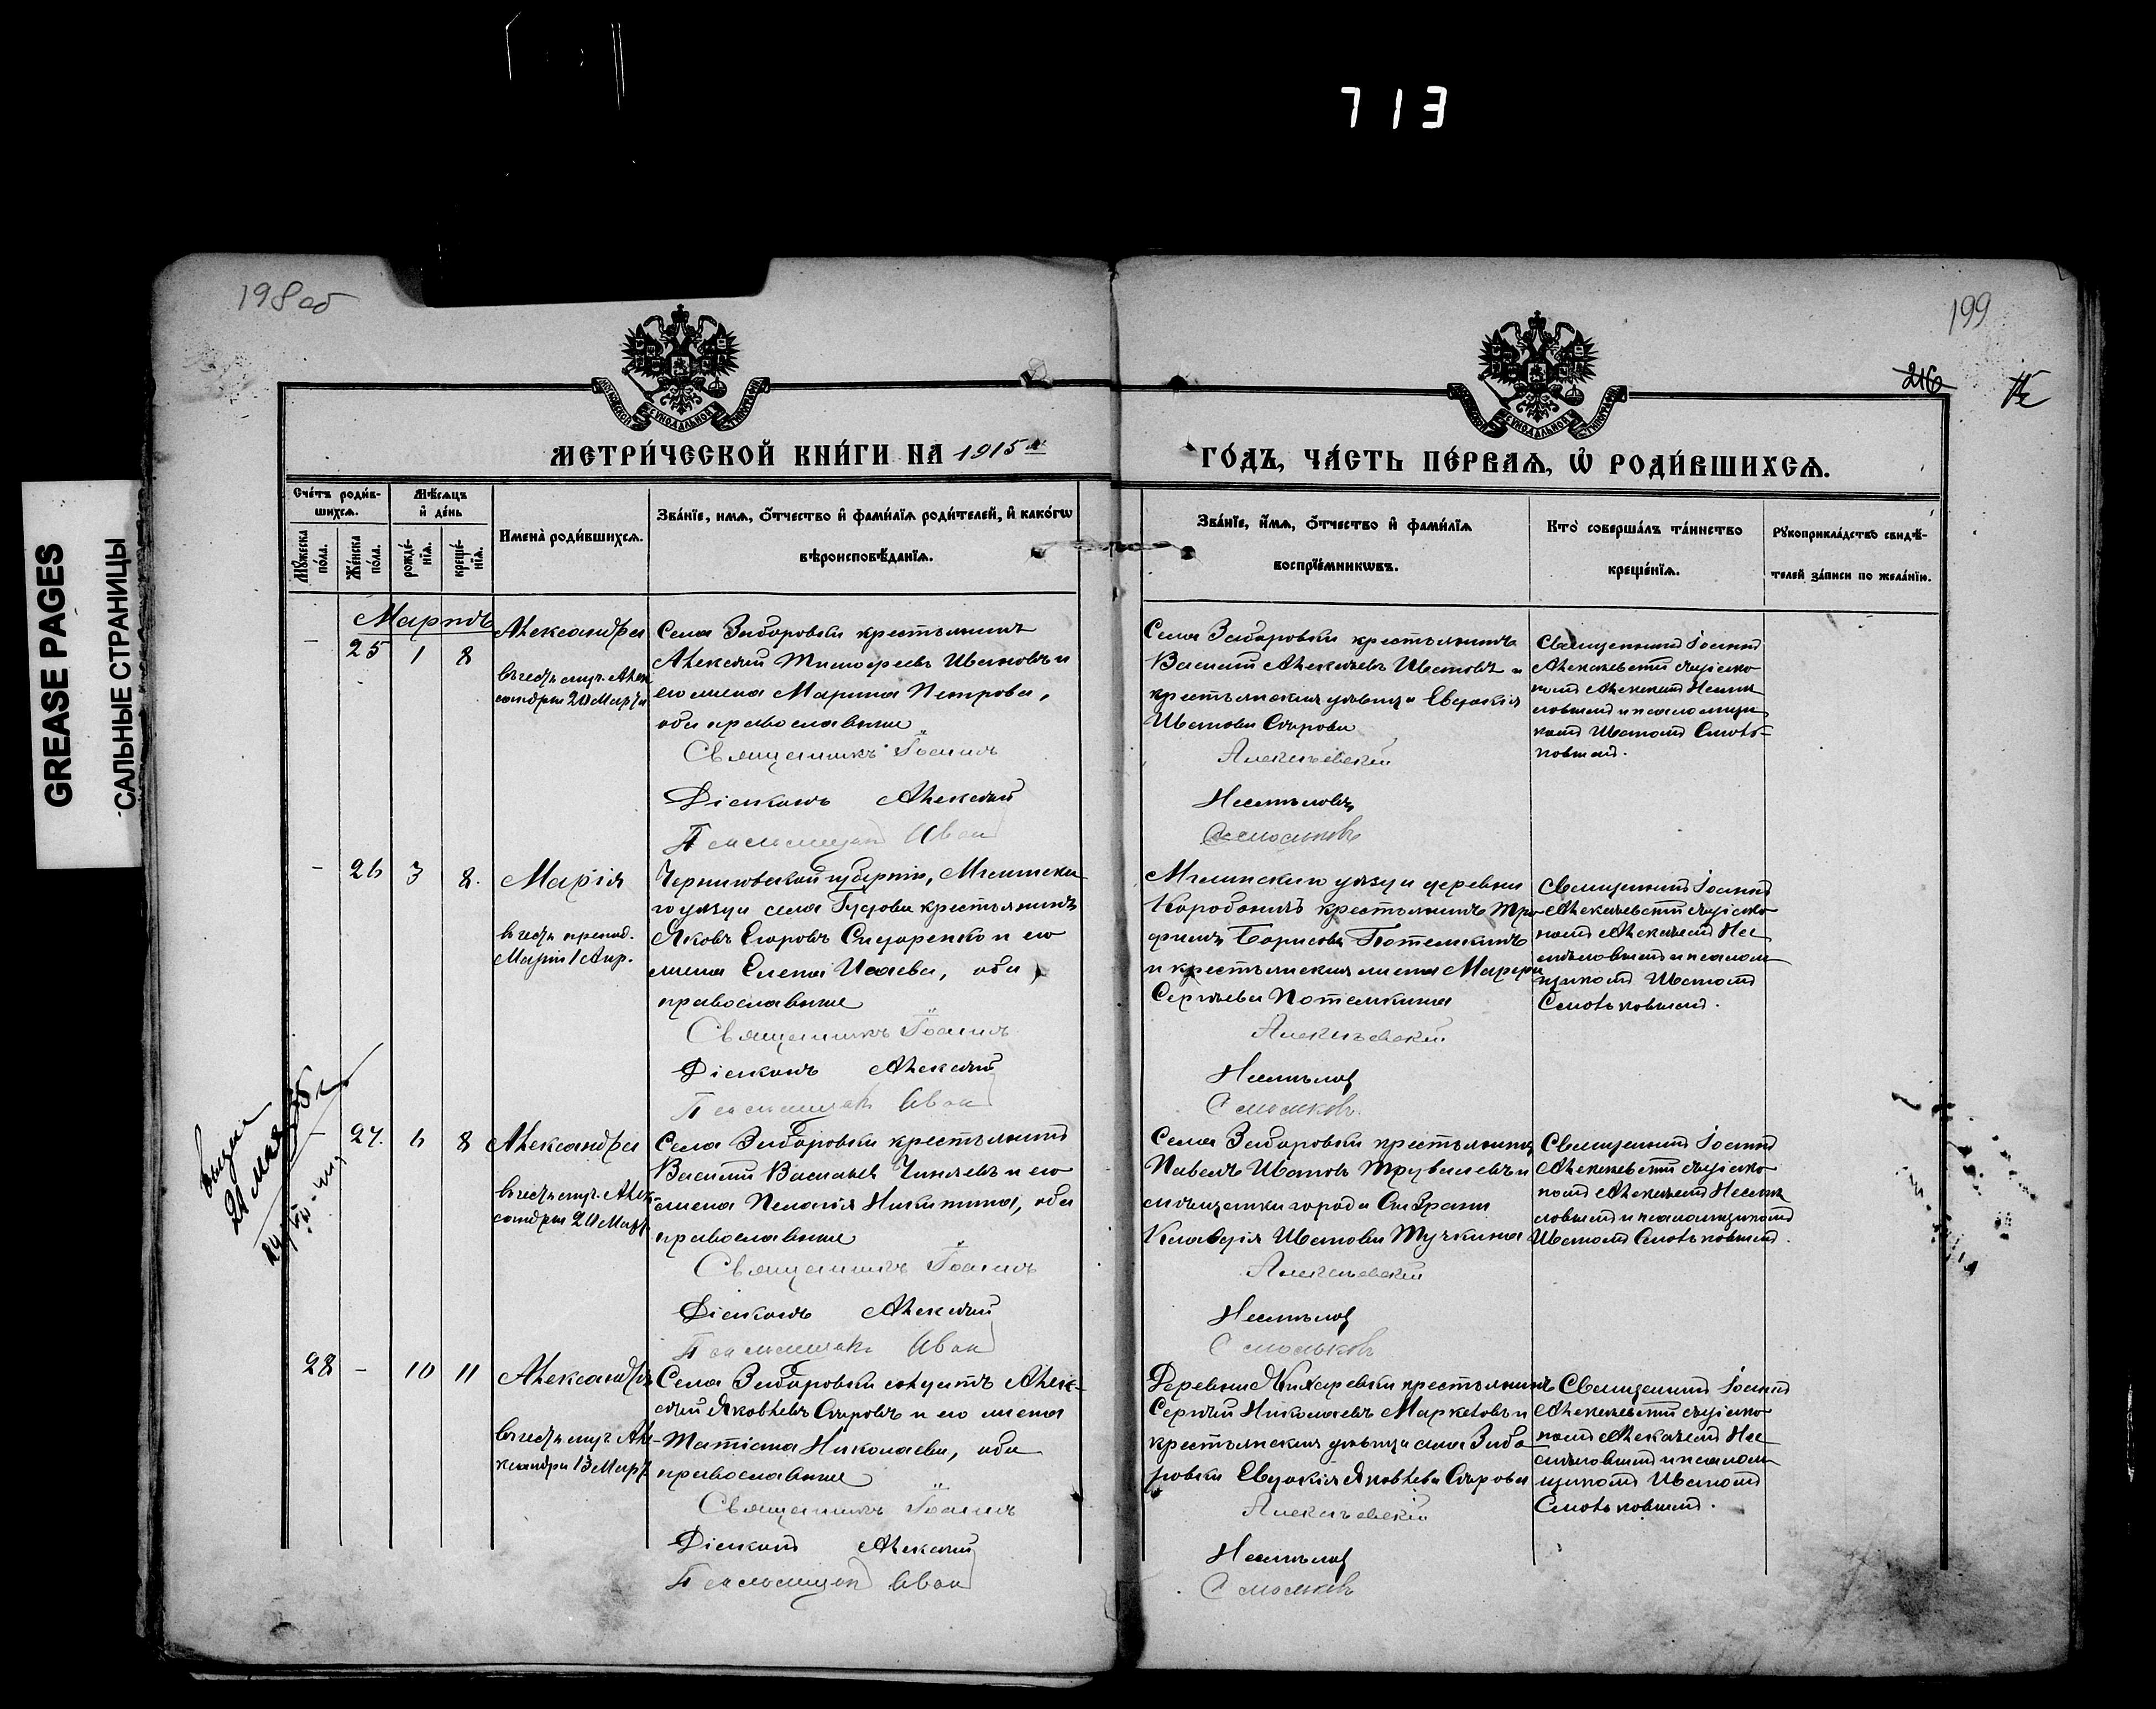 713
GREASE PAGES
САЛЬНЫЕ СТРАНИЦЫ
198 об
199
216
МЕТРИ́ЧЕСКОЙ КНИ́ГИ НА 1915й
ГО́ДЪ, ЧА́СТЬ ПЕ́РВАѦ, Ѡ҆ РОДИ́ВШИХСѦ.
Сче́тъ роди́в-
шихсѧ.
Мꙋ́жеска
по́ла.
Же́нска
по́ла.
Мѣ́сѧцъ
и҆ де́нь
рожде́-
нїѧ.
креще́-
нїѧ.
Имена̀ роди́вшихсѧ.
Зва́нїе, имѧ, ѻ҆́тчество и҆ фами́лїѧ роди́телей, и҆ како́гѡ
вѣроисповѣ́данїѧ.
Зва́нїе, и҆́мѧ, ѻ҆́тчество и҆ фами́лїѧ
воспрїе́мникѡвъ.
Кто̀ соверша́лъ та́инство
креще́нїѧ.
Рꙋкоприкла́дство свидѣ́-
телей за́писи по жела́нїю.
Мартъ
- 25 1 8
Александра
въ честь муч. Алек
сандры 20 Марта
Села Заборовки крестьянинъ
Алексѣй Тимофеевъ Ивановъ и
его жена Марина Петрова,
оба православные
Священникъ Іоаннъ
Діаконъ Алексѣй
Псаломщикъ Иван
Села Заборовки крестьянинъ
Василій Алексѣевъ Ивановъ и
крестьянская дѣвица Евдокія
Иванова
Алексѣевскій
Смольковъ
Священникъ Іоаннъ
Алексѣевскій съ діако
номъ Алексѣемъ
ловымъ и псаломщи
комъ Иваномъ Смоль-
ковымъ.
- 26 3 8.
Марія
въ честь препод.
Маріи 1 Апр.
Черниговской губерніи, Мглинска-
го уѣзда села крестьянинъ
Яковъ Егоровъ Сидоренко и его
жена Елена Исаева, оба
православные
Священникъ Іоаннъ
Діаконъ Алексѣй
Псаломщикъ Иван
Мглинскаго уѣзда деревни
крестьянинъ Тро-
фимъ Борисовъ Потемкинъ
и крестьянская жена Марфа
Сергѣева Потемкина
Алексѣевскій
Смольковъ
Священникъ Іоаннъ
Алексѣевскій съ діако-
номъ Алексѣемъ
ловымъ и псалом-
щикомъ Иваномъ
Смольковымъ.
- 27. 6 8
Александра
въ честь муч. Алек-
сандры 20 Март.
Села Заборовки крестьянинъ
Василій Васильевъ и его
жена Пелагія Никитина, оба
православные
Священникъ Іоаннъ
Діаконъ Алексѣй
Псаломщикъ Иван
Села Заборовки крестьянинъ
Павелъ Ивановъ и
мѣщанка города Сызрани
Клавдія Иванова Тучкина
Алексѣевскій
Смольковъ
Священникъ Іоаннъ
Алексѣевскій съ діако-
номъ Алексѣемъ
ловымъ и псаломщикомъ
Иваномъ Смольковымъ.
28 - 10 11
Александръ
въ честь муч. Але-
ксандра 13 Март.
Села Заборовки солдатъ Алек-
сѣй Яковлевъ и его жена
Татіана Николаева, оба
православные
Священникъ Іоаннъ
Діаконъ Алексѣй
Псаломщикъ Иван
Деревни крестьянинъ
Сергѣй Николаевъ Маркеловъ и
крестьянская дѣвица села Забо-
ровки Евдокія Яковлева
Алексѣевскій
Смольковъ
Священникъ Іоаннъ
Алексѣевскій съ діако-
номъ Алексѣемъ
ловымъ и псалом-
щикомъ Иваномъ
Смольковымъ.